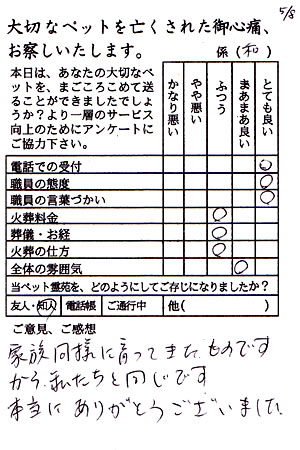 5/8
大切なペットを亡くされた御心痛、
お察しいたします。
係(和)
本日は、あなたの大切なペ
ットを、まごころこめて送
ることができましたでしょ
うか？より一層のサービス
向上のためにアンケートに
ご協力下さい。
かなり悪い
やや悪い
ふつう
まあまあ良い
とても良い
電話での受付 ○
職員の態度 ○
職員の言葉づかい ○
火葬料金 ○
葬儀・お経 ○
火葬の仕方 ○
全体の雰囲気 ○
当ペット霊苑を、どのようにしてご存じになりましたか？
友人・知人 電話帳 ご通行中 他(　　)
ご意見、ご感想
家族同様に育ってきたものです
から私たちと同じです
本当にありがとうございました